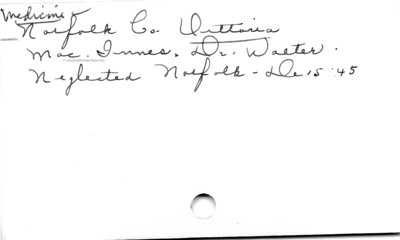 Medicine
Norfolk Co. Vittoria
Mac. Innes. Dr. Walter.
Neglected Norfolk - De 15 '45